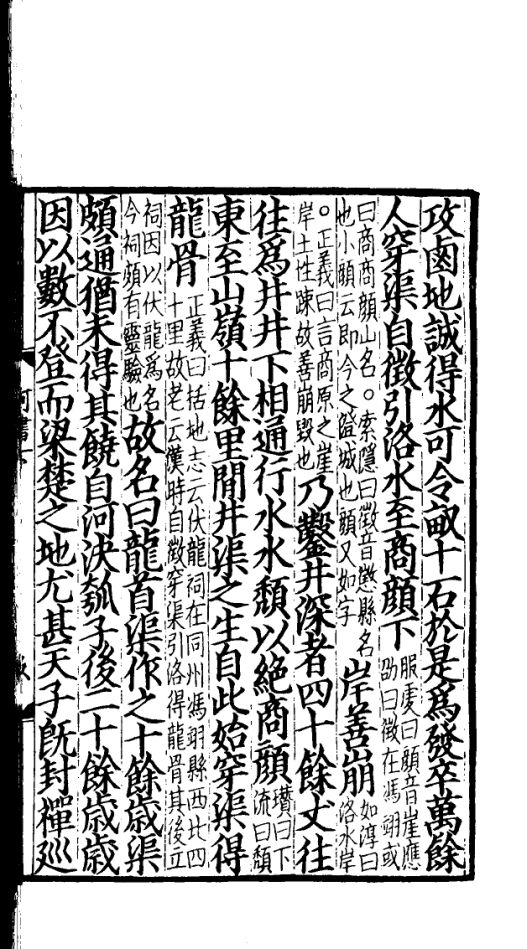 攻鹵地誠得水可令畝十一石於是爲發卒萬餘
人穿渠自徵引洛水至商顔下服虔曰顔音崖應劭曰徵在馮翊或
曰商商顔山名。索隱曰徵音懲縣名也小顔云即今之城也顔又如字岸善崩如淳曰洛水岸
。正義曰言商原之崖岸土性疎故善崩毀也乃鑿井深者四十餘丈往
往爲井井下相通行水水頹以絶商顔瓚曰下流曰頹
東至山嶺十餘里閒井渠之生自此始穿渠得
龍骨正義曰括地志云伏龍祠在同州馮翊縣西北四十里故老云漢時自徵穿渠引洛得龍骨其後立
祠因以伏龍爲名今祠頗有靈驗也故名曰龍首渠作之十餘歲渠
頗通猶未得其饒自河決瓠子後二十餘歲歲
因以數不登而梁楚之地尤甚天子旣封禪巡